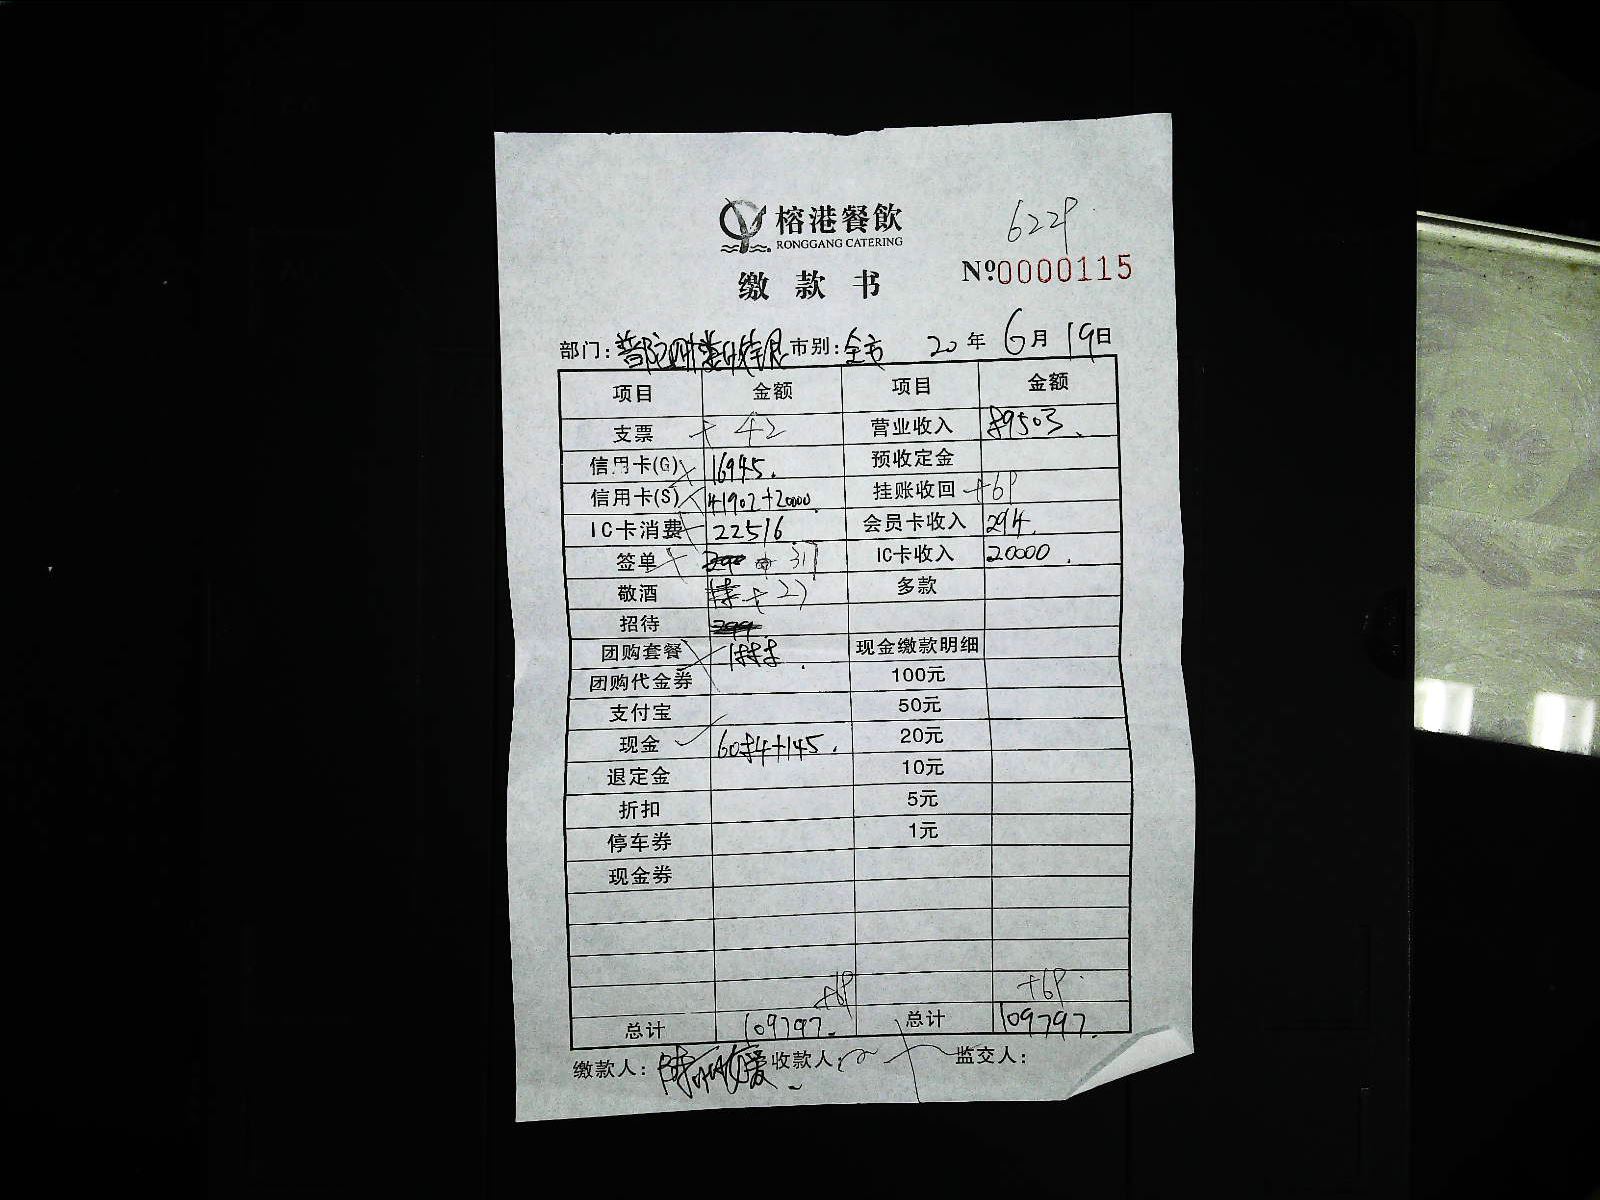 榕港餐飲
RONGGANG CATERING
6229
缴款书
Nº 0000115
部门: 市别:全市 20年6月19日
项目 金额 项目 金额
支票 + 42 营业收入 89503
信用卡(G) 16945. 预收定金
信用卡(S) 41902+20000 挂账收回 +69
IC卡消费 22516 会员卡收入 294.
签单 + 317 IC卡收入 20000.
敬酒 + 27 多款
招待
团购套餐 现金缴款明细
团购代金券 100元
支付宝 50元
现金 6084+145. 20元
退定金 10元
折扣 5元
停车券 1元
现金券
+69 +69
总计 109797. 总计 109797.
缴款人: 收款人: 监交人: